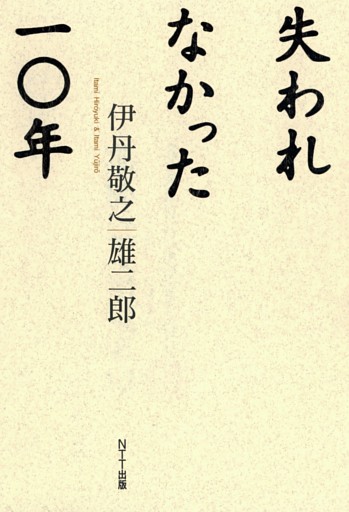 失われ
なかった
一〇年
伊丹敬之｜雄二郎
Itami Hiroyuki & Itami Yūjirō
NTT出版